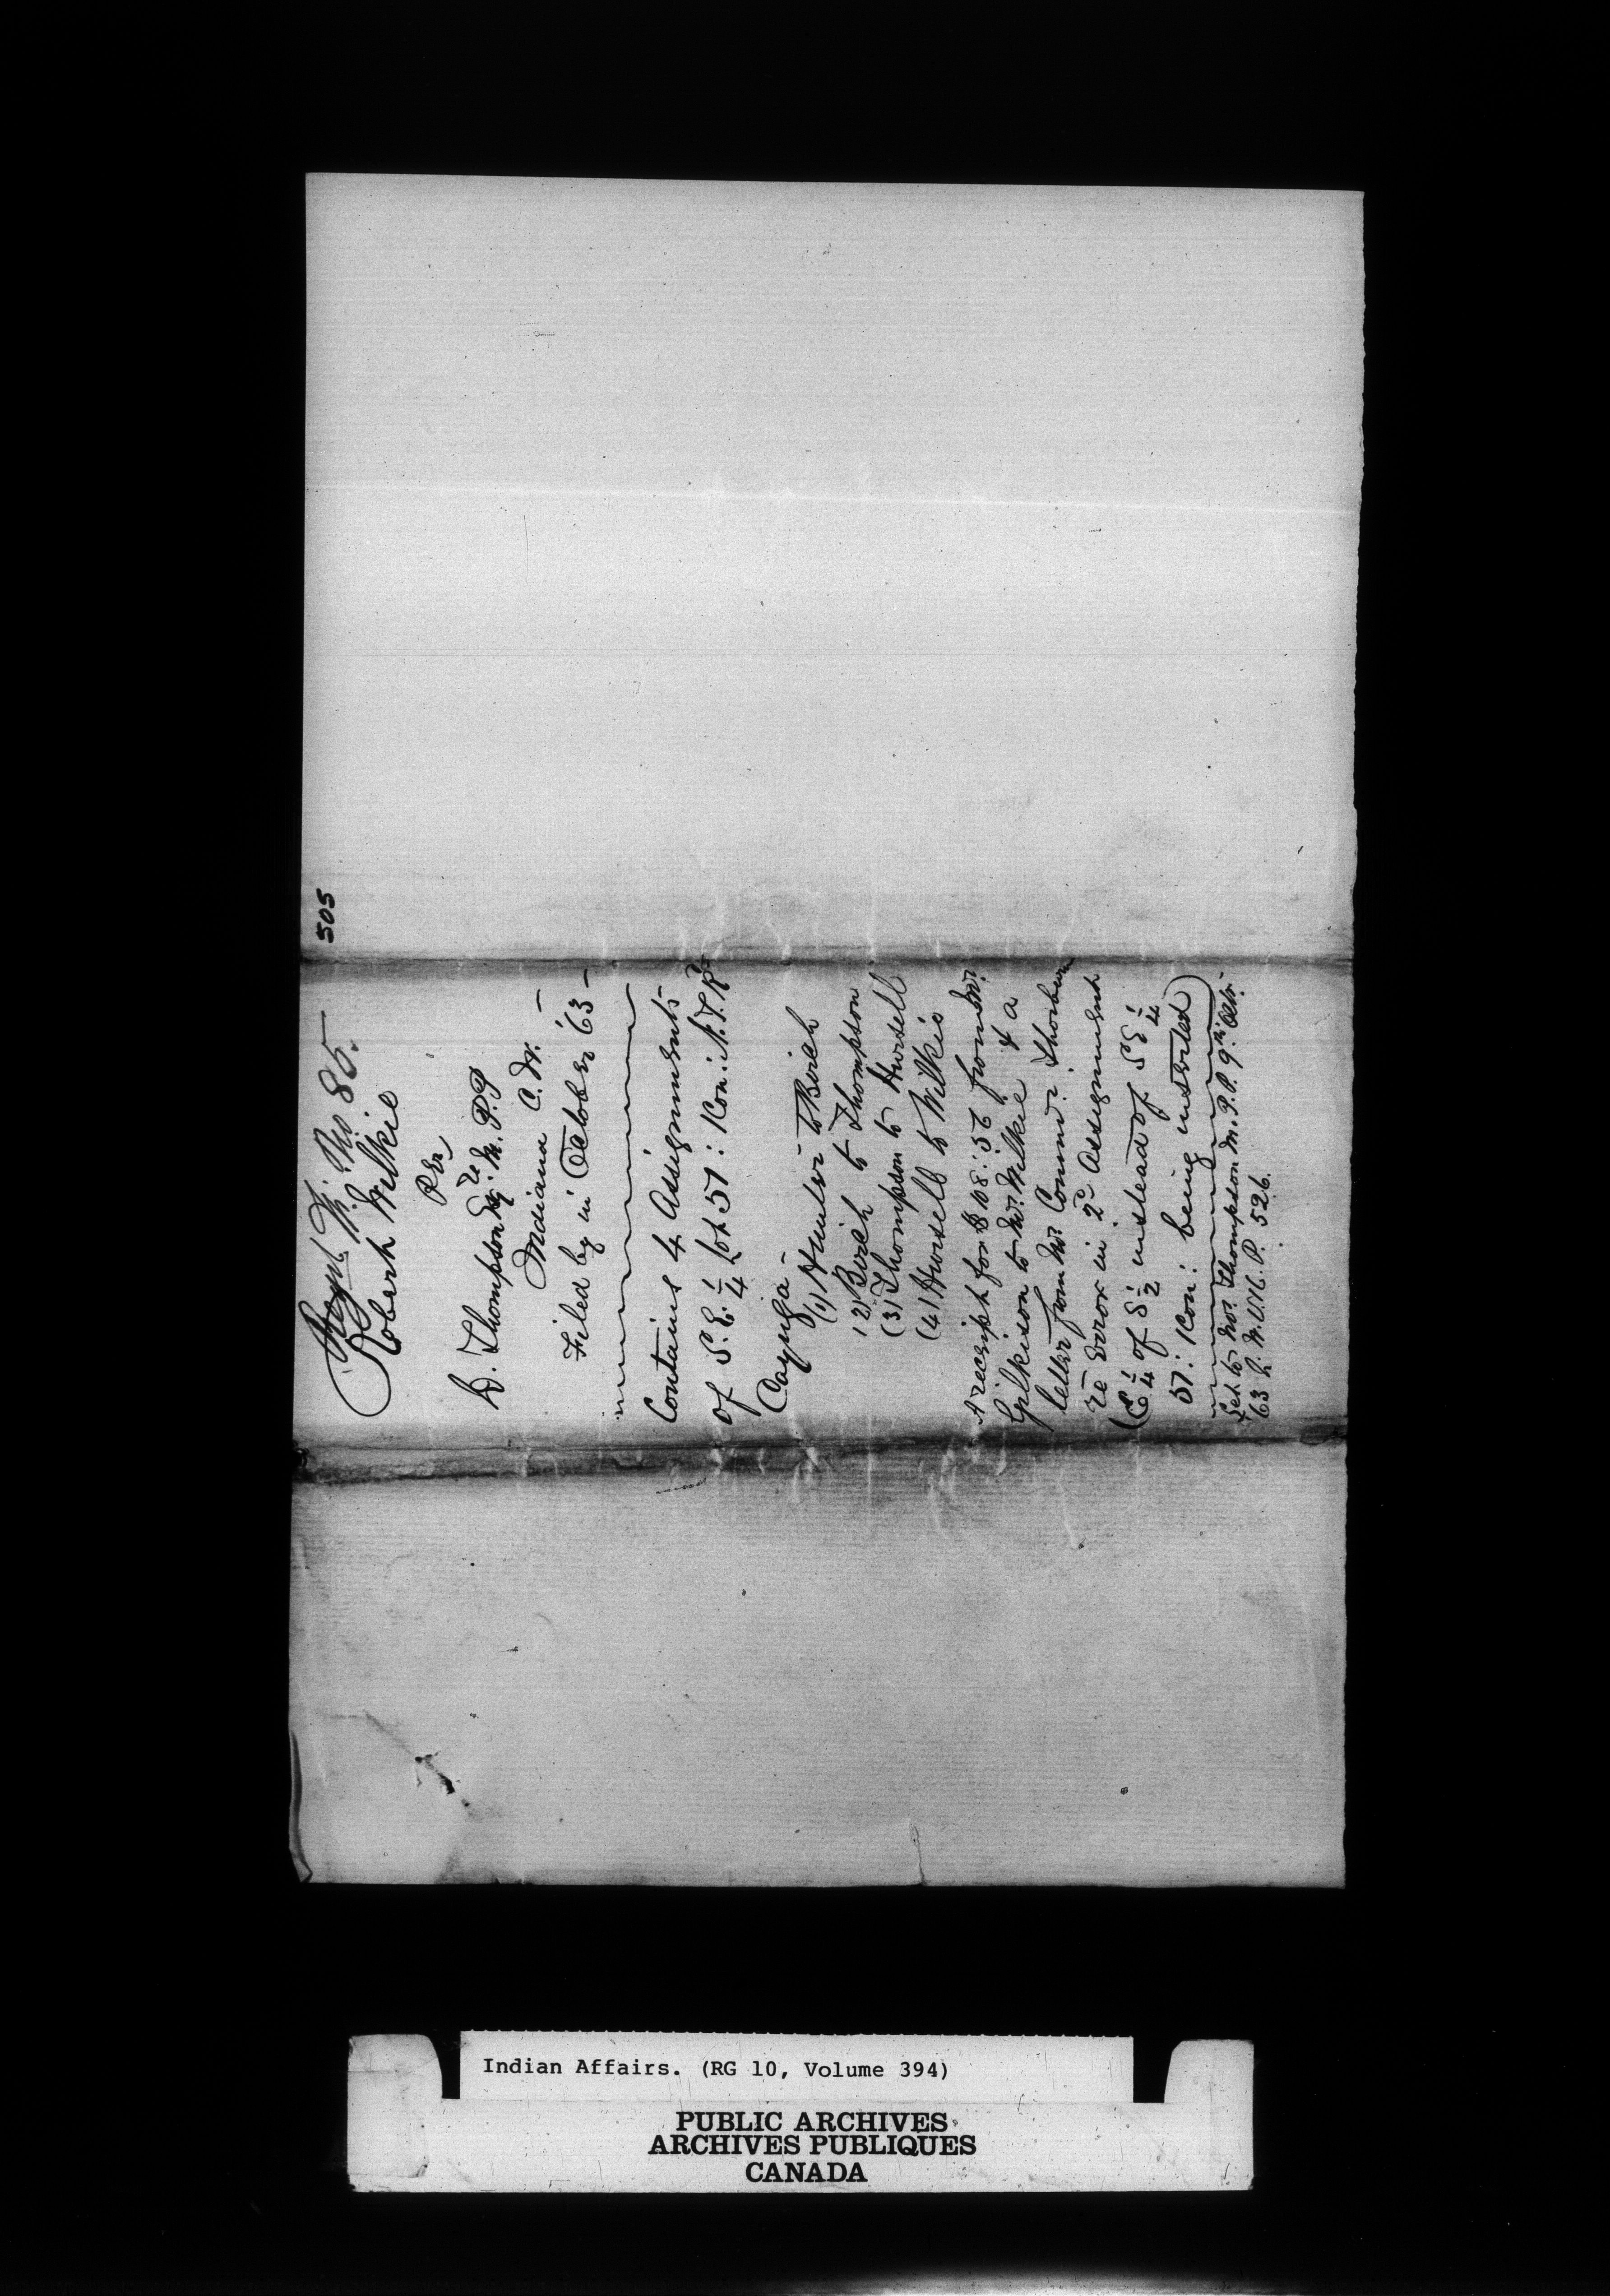 505
Regr. W. No. 85.
Robert Wilkie
Per
D. Thompson Esqre M.P.P
Indiana C.W. —
Filed by in October '63 —
Contains 4 Assignments
of S.E. 1/4 Lot 51: 1 Con: N.T.R
Cayuga —
(1) Hunter to Birch
(2) Birch to Thompson
(3) Thompson to Hursell
(4) Hursell to Wilkie
A receipt for $108:56 from Mr.
Gilkison to Mr. Wilkie & a
letter from Mr. Commr. Thorburn
re Error in 2d Assignment
(E 1/4 of S 1/2 instead of S E 1/4
51: 1 Con: being inserted)
Let. to Mr. Thompson M.P.P. 9th Octr.
63 P. 526.
Indian Affairs. (RG 10, Volume 394)
PUBLIC ARCHIVES
ARCHIVES PUBLIQUES
CANADA